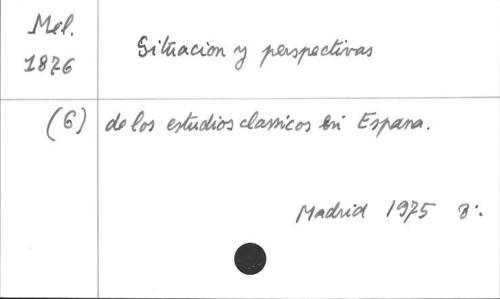 Mél.
1876
Situacion y perspectivas
(6) de los estudios classicos en Espana.
Madrid 1975 8:.